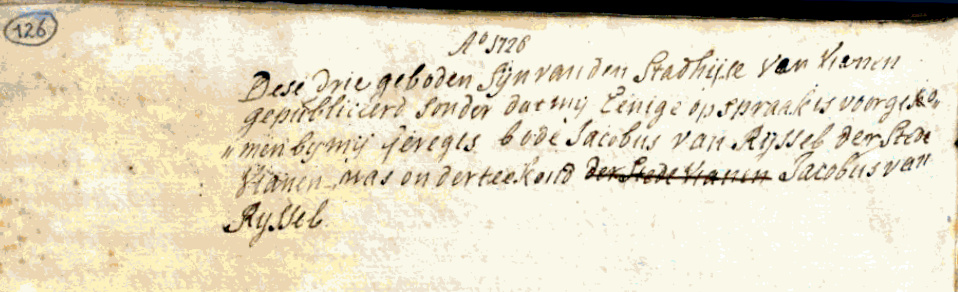 126
Aº 1726
Dese drie geboden Sijn van den Stadhijse van Vianen
gepubliceerd sonder dat mij Eenige opspraak is voorgeko„
„men by mij Geregts bode Jacobus van Ryssel der Stede
Vianen was onderteekend der Stede Vianen Jacobus van
Ryssel